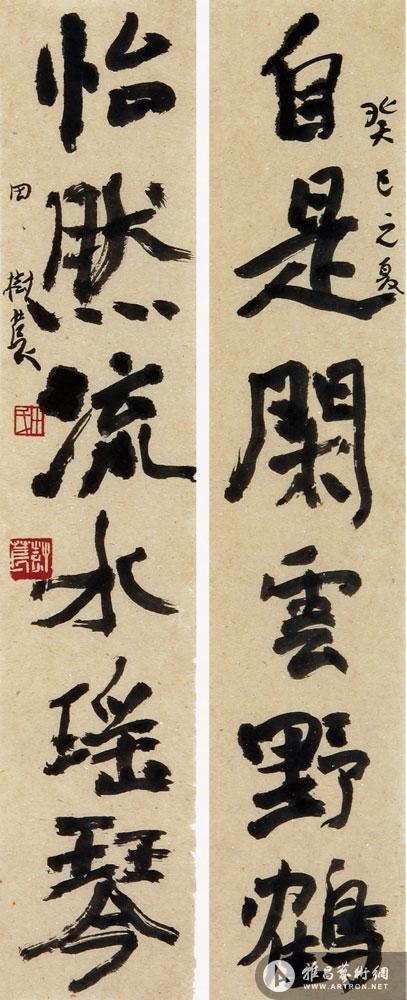 癸巳之夏
自是閑雲野鶴
怡然流水瑶琴
田樹萇
雅昌藝術網
WWW.ARTRON.NET